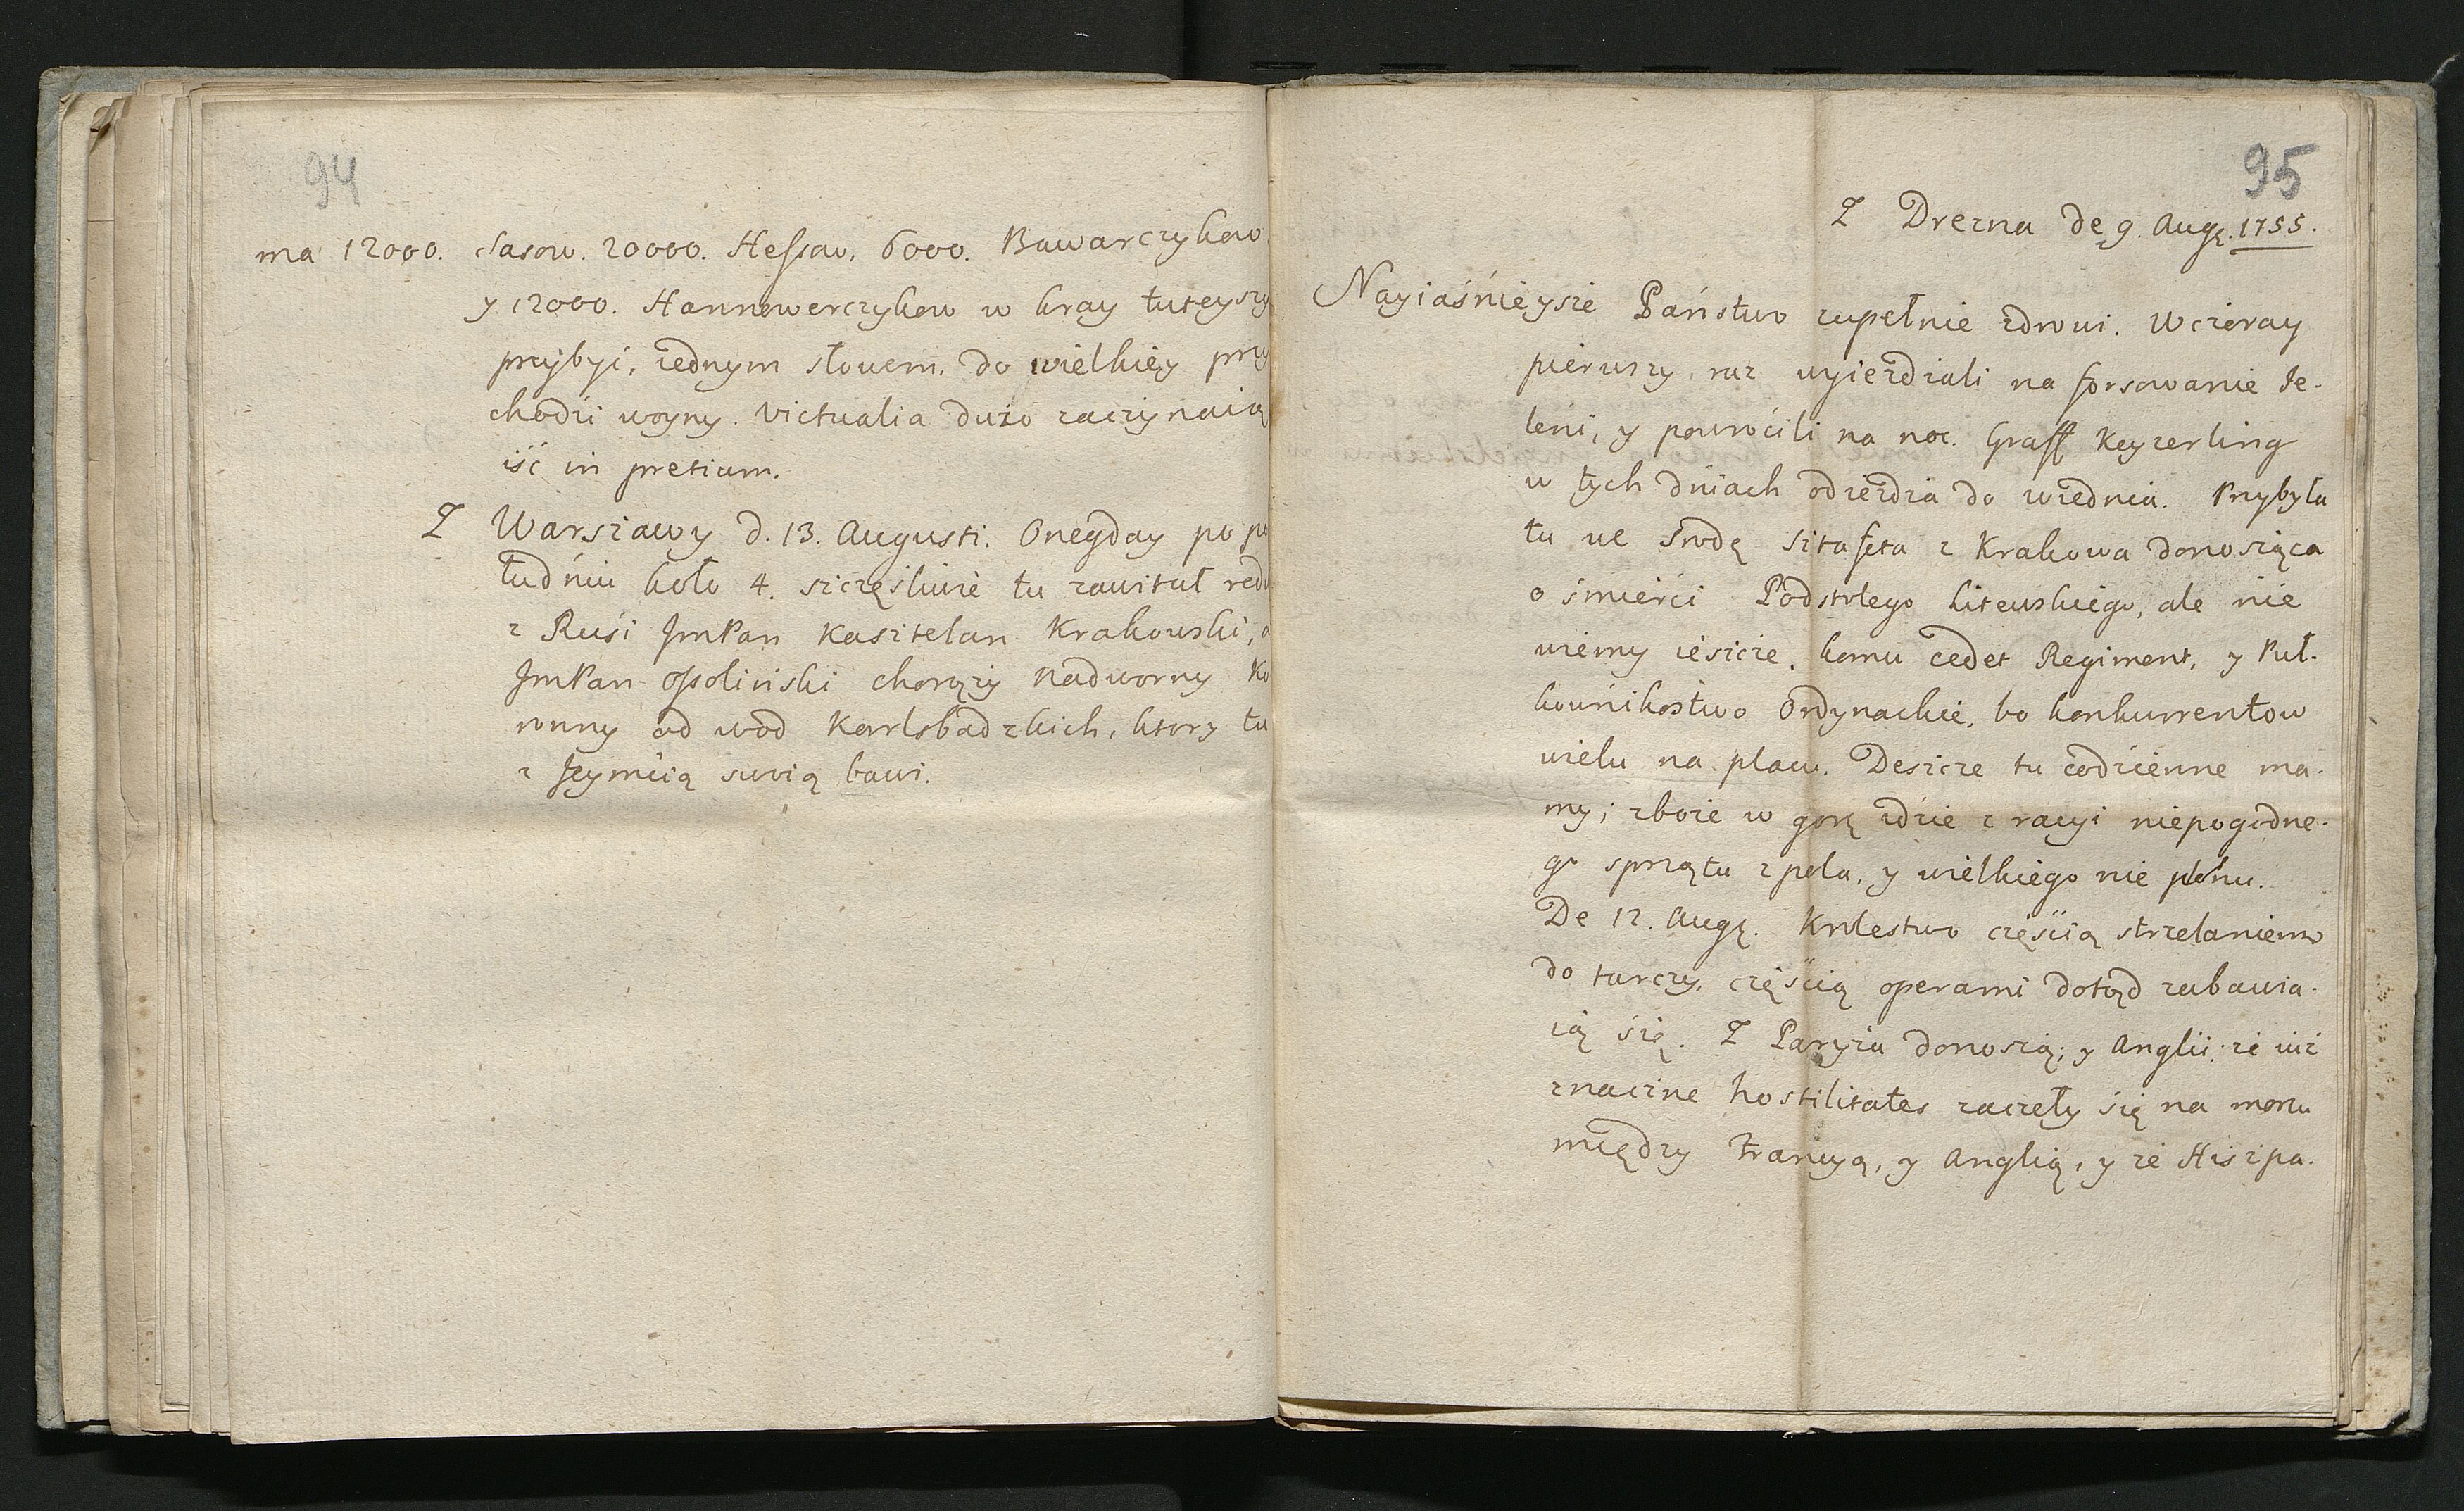 94
ma 12000. Sasow. 20000. Hessow. 6000. Bawarczykow
y 12000. Hannowerczykow w kray tuteyszy
przybyi, iednym słowem. do wielkiey przy
chodzi woyny. Victualia dużo zaczynaią
iść in pretium.
Z Warszawy d. 13. Augusti. Onegday po po
łudniu koło 4. szczęśliwie tu zawitał
z Rusi JmPan Kasztelan Krakowski, a
JmPan Ossoliński chorąży nadworny Ko
ronny od wod Karlsbadzkich, ktory tu
z Jeymcią swoią bawi.
95
Z Drezna de 9. Aug. 1755.
Nayiaśnieysze Państwo zupełnie zdrowi. Wczoray
pierwszy raz wyiezdzali na forsowanie Je-
leni, y powrócili na noc. Graff Keyzerling
w tych dniach odiezdza do Wiednia. Przybyła
tu we srodę sztafeta z Krakowa donosząca
o śmierci Podstolego Litewskiego, ale nie
wiemy ieszcze, komu cedet Regiment, y Puł-
kownikostwo Ordynackie, bo konkurrentow
wielu na placu. Deszcze tu codzienne ma-
my; zboże w gorę idzie z racyi niepogodne-
go sprzątu z pola, y wielkiego nie plonu.
De 12. Aug. Krolestwo częścią strzelaniem
do tarczy, częścią operami dotąd zabawia-
ią się. Z Paryża donoszą, y Anglii, że iuż
znaczne hostilitates zaczeły się na morzu
między Francyą, y Anglią, y że Hiszpa-